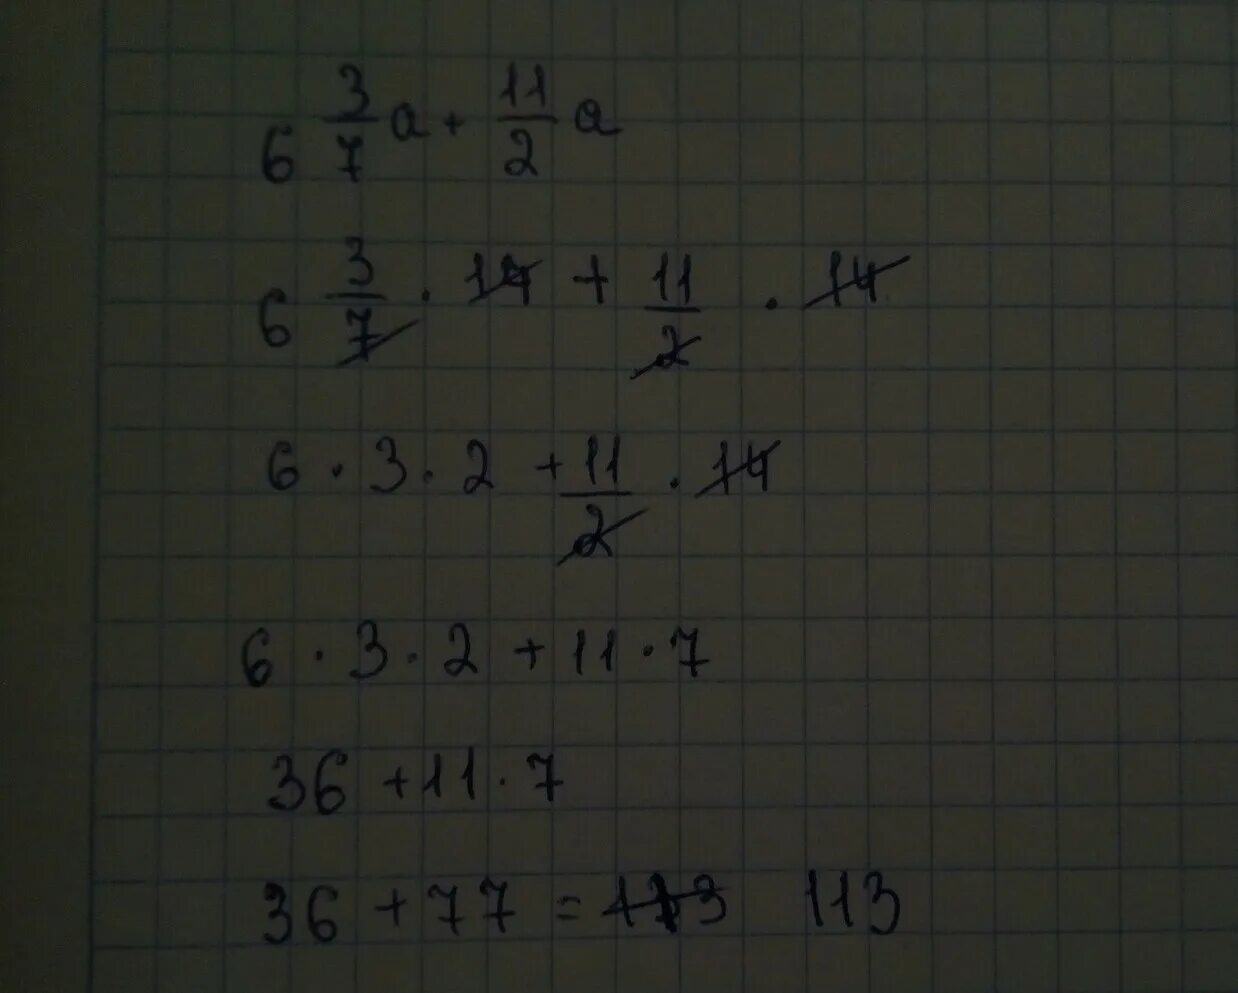 6 3/7 a + 11/2 a
6 3/7 · 14 + 11/2 · 14
6 · 3 · 2 + 11/2 · 14
6 · 3 · 2 + 11 · 7
36 + 11 · 7
36 + 77 = 113